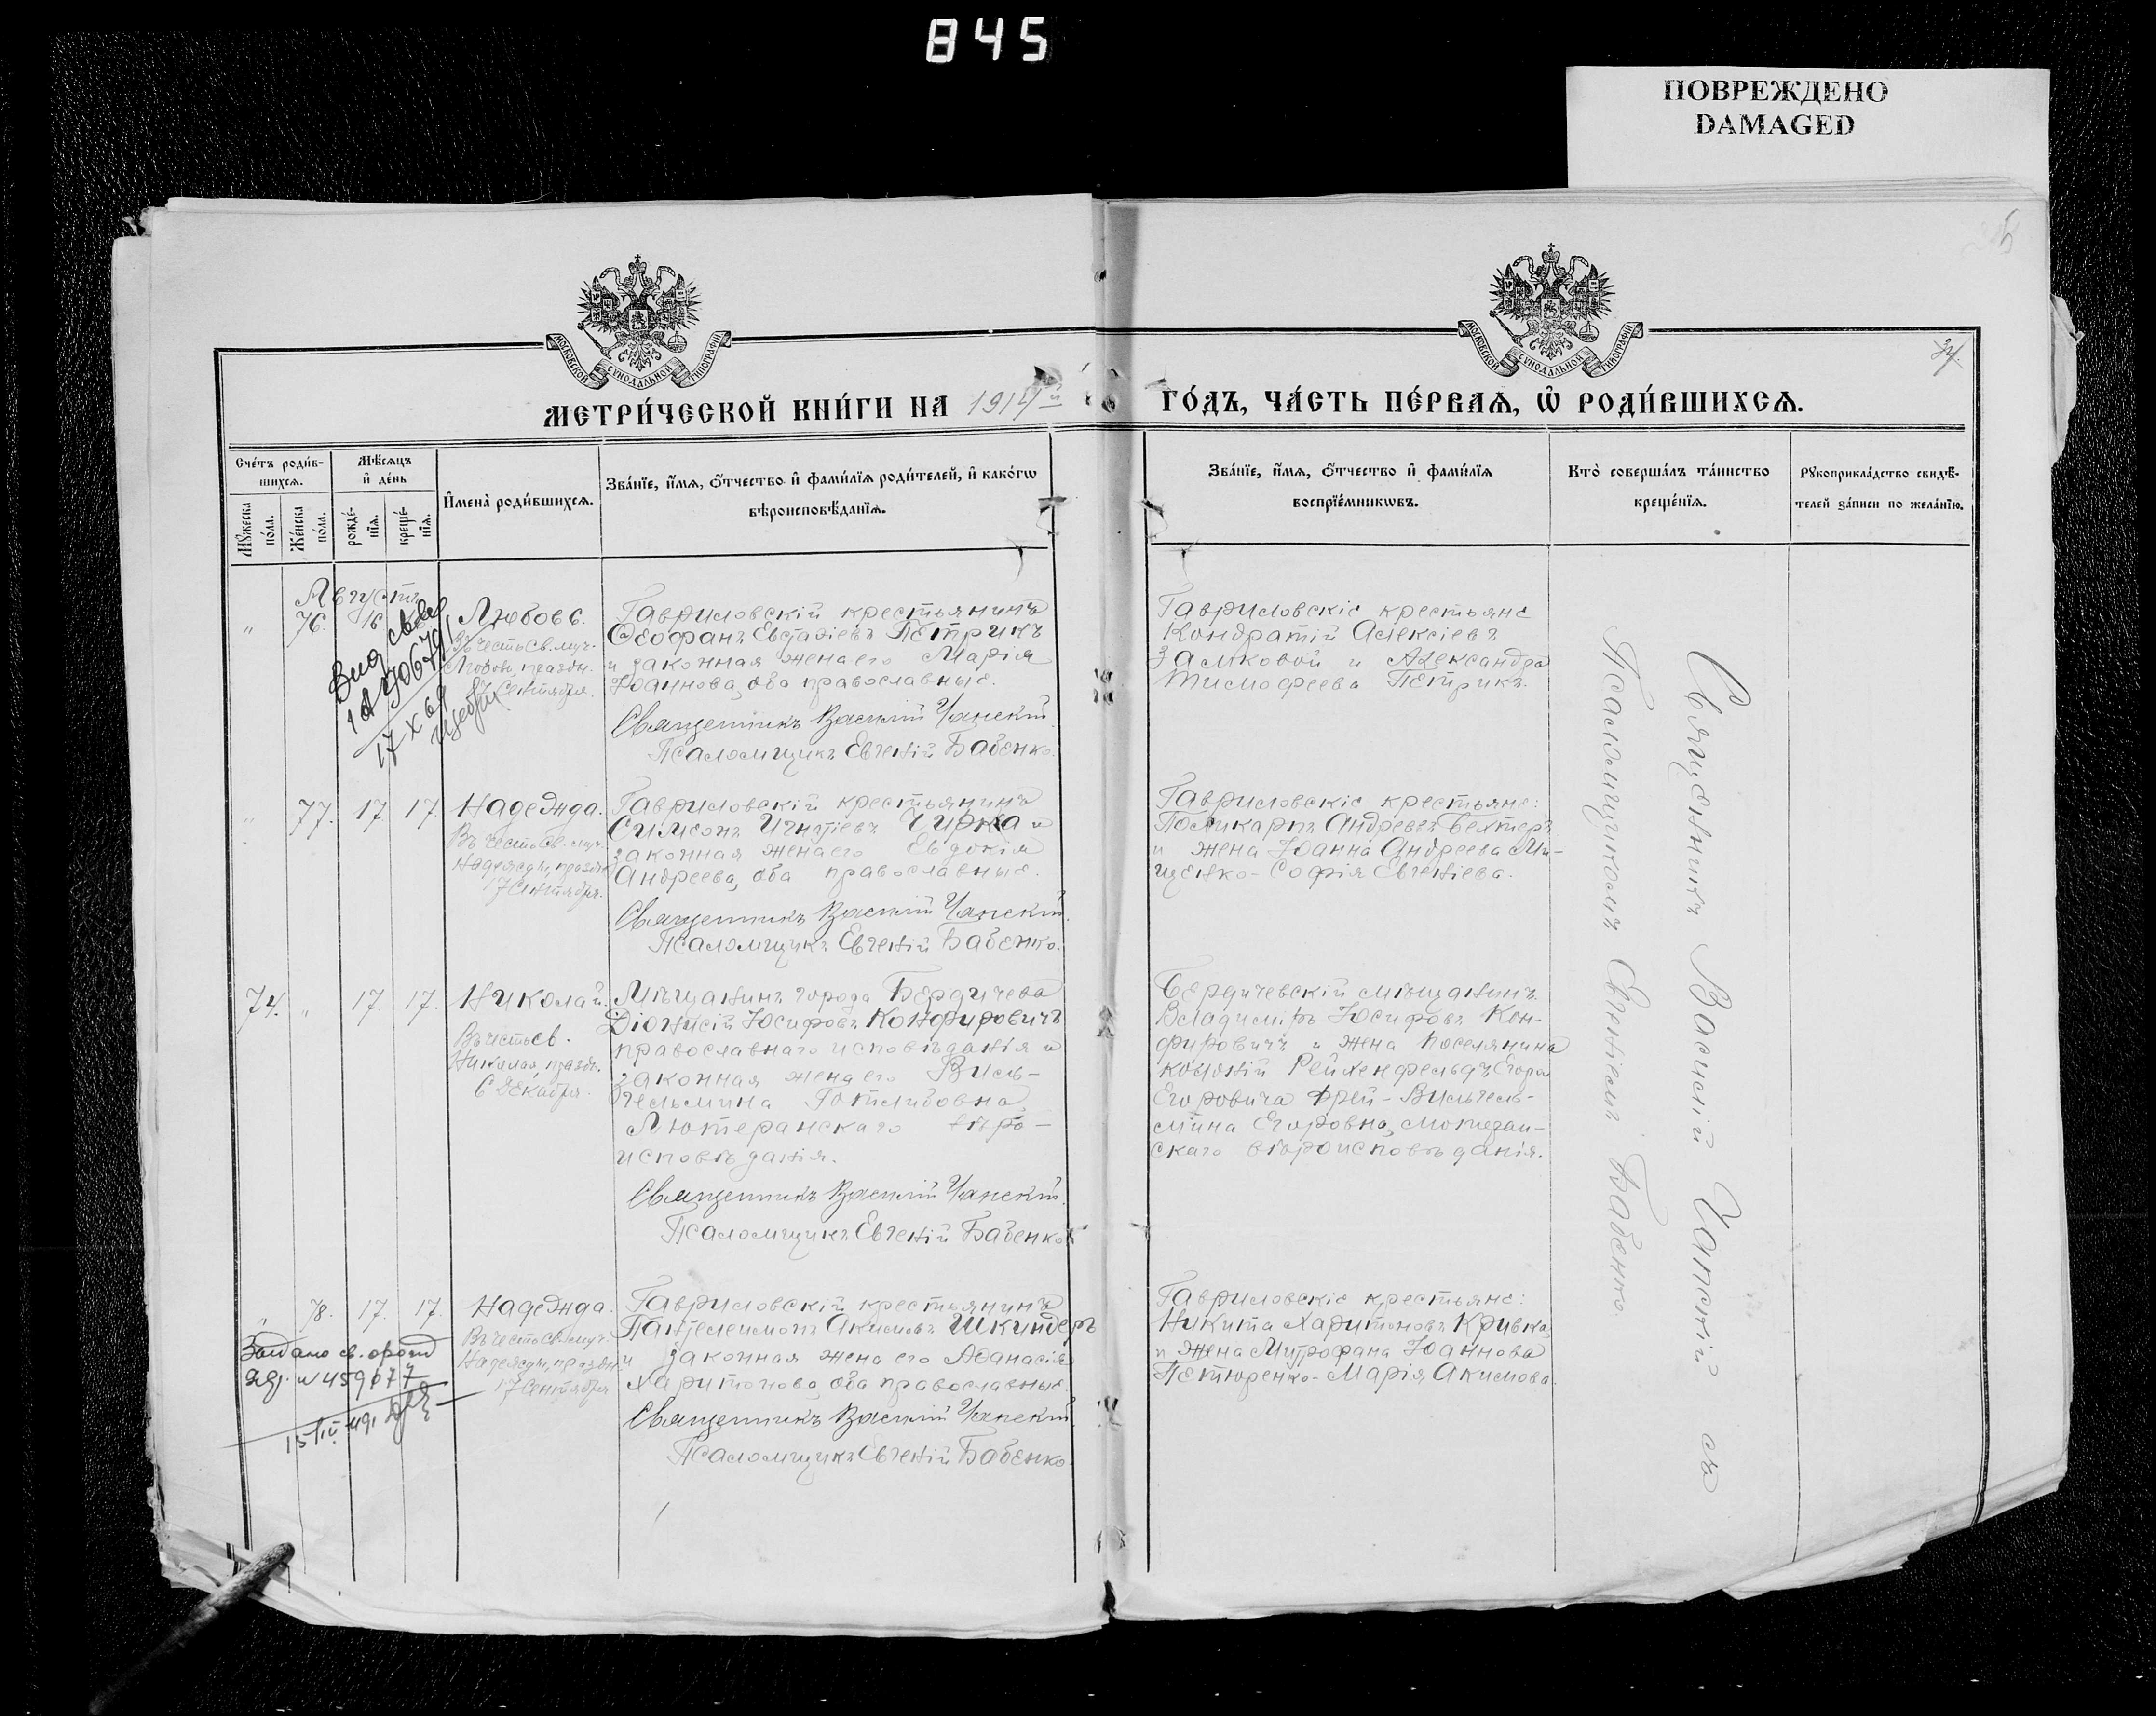 845
ПОВРЕЖДЕНО
DAMAGED
МОСКОВСКОЙ СѴНОДАЛЬНОЙ ТИПОГРАФІИ
МОСКОВСКОЙ СѴНОДАЛЬНОЙ ТИПОГРАФІИ
34.
МЕТРИ́ЧЕСКОЙ КНИ́ГИ НА 1914й ГО́ДЪ, ЧА́СТЬ ПЕ́РВАѦ, Ѡ҆ РОДИ́ВШИХСѦ.
Сче́тъ роди́в-
шихсѧ.
Мѣ́сѧцъ
и҆ де́нь
Мꙋ́жеска
по́ла.
Же́нска
по́ла.
рожде́-
нїѧ.
креще́-
нїѧ.
И҆мена̀ роди́вшихсѧ.
Зва́нїе, и҆́мѧ, ѻ҆́тчество и҆ фами́лїѧ роди́телей, и҆ како́гѡ
вѣроисповѣ́данїѧ.
Зва́нїе, и҆́мѧ, ѻ҆́тчество и҆ фами́лїѧ
воспрїе́мникѡвъ.
Кто̀ соверша́лъ та́инство
креще́нїѧ.
Рꙋкоприкла́дство свидѣ́-
телей за́писи по жела́нїю.
Августъ
" 76. 16
Любовь.
Въ честь св. муч.
Любови, праздн.
17 Сентября.
17 X 69
Гавриловскій крестьянинъ
Ѳеофанъ Евстафіевъ Петрикъ
и законная жена его Марія
Іоаннова, оба православные.
Священникъ Василій Чанскій.
Псаломщикъ Евгеній Бабенко.
Гавриловскіе крестьяне
Кондратій Алексіевъ
Замковой и Александра
Тимофеева Петрикъ.
" 77. 17. 17.
Надежда.
Въ честь св. муч.
Надежды, праздн.
17 Сентября.
Гавриловскій крестьянинъ
Симеонъ Игнатіевъ Чирка и
законная жена его Евдокія
Андреева, оба православные.
Священникъ Василій Чанскій.
Псаломщикъ Евгеній Бабенко.
Гавриловскіе крестьяне:
Поликарпъ Андреевъ Бехтеръ
и жена Іоанна Андреева Ми-
щенко - Софія Евгеніева.
74. " 17. 17.
Николай.
Въ честь св.
Николая, праздн.
6 Декабря.
Мѣщанинъ города Бердичева
Діонисій Іосифовъ Конфировичъ
православнаго исповѣданія и
законная жена его Виль-
гельмина Готлибовна
Лютеранскаго вѣро-
исповѣданія.
Священникъ Василій Чанскій.
Псаломщикъ Евгеній Бабенко
Бердичевскій мѣщанинъ
Владиміръ Іосифовъ Кон-
фировичъ и жена поселянина
колоніи Рейхенфельдъ Егора
Егоровича Фрей - Вильгель-
мина Егоровна, лютеран-
скаго вѣроисповѣданія.
" 78. 17. 17.
Надежда.
Въ честь св. муч.
Надежды, праздн.
17 Сентября
15/IV-49.
Гавриловскій крестьянинъ
Пантелеимонъ Акимовъ Шкиндеръ
и законная жена его Аѳанасія
Харитонова, оба православные.
Священникъ Василій Чанскій.
Псаломщикъ Евгеній Бабенко.
Гавриловскіе крестьяне:
Никита Харитоновъ Кривка
и жена Митрофана Іоаннова
Петюренко - Марія Акимова.
Священникъ Василій Чанскій съ
Псаломщикомъ Евгеніемъ Бабенко.